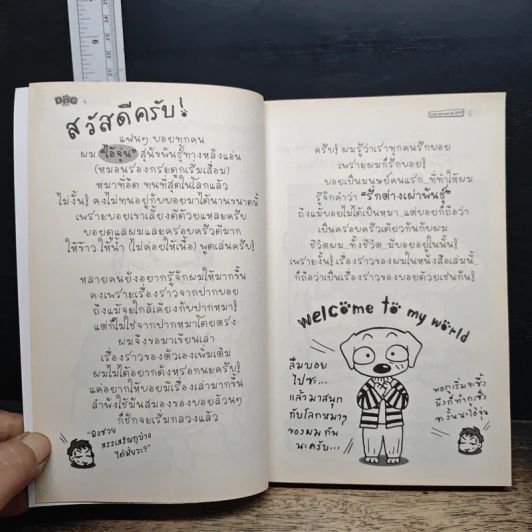 DOG
สวัสดีครับ!
แฟนๆ บอยทุกคน
ผม "ไอ้จุ่น" สุนัขพันธุ์ทางหลังแอ่น
(หมอนรองกระดูกเริ่มเสื่อม)
หมาที่อึด ทนที่สุดในโลกแล้ว
ไม่งั้น! คงไม่ทนอยู่กับบอยมาได้นานขนาดนี้
เพราะบอยเขาเลี้ยงดีด้วยแหละครับ
บอยดูแลผมและครอบครัวดีมาก
ให้ข้าว ให้น้ำ (ไม่ค่อยให้เนื้อ) พูดเล่นครับ!
หลายคนยังอยากรู้จักผมให้มากขึ้น
คงเพราะเรื่องราวจากปากบอย
ถึงแม้จะใกล้เคียงกับปากหมา!
แต่ก็ไม่ใช่จากปากหมาโดยตรง
ผมจึงขอมาเขียนเล่า
เรื่องราวของตัวเองเพิ่มเติม
ผมไม่ได้อยากดังหรอกนะครับ!
แค่อยากให้บอยมีเรื่องเล่ามากขึ้น
ลำพังใช้มันสมองของบอยล้วนๆ
ก็ชักจะเริ่มกลวงแล้ว
"มึงช่วย
สรรเสริญกูบ้าง
ได้มั้ยวะ?"
5
ครับ! ผมรู้ว่าเราทุกคนรักบอย
เพราะผมก็รักบอย!
บอยเป็นมนุษย์คนแรก..ที่ทำให้ผม
รู้จักคำว่า "รักต่างเผ่าพันธุ์"
ถึงแม้บอยไม่ได้เป็นหมา..แต่บอยก็ถือว่า
เป็นครอบครัวเดียวกันกับผม
ชีวิตผม..ทั้งชีวิต..มีบอยอยู่ในนั้น!
เพราะงั้น! เรื่องราวของผมในหนังสือเล่มนี้
ก็ถือว่าเป็นเรื่องราวของบอยด้วยเช่นกัน!
welcome to my world
ลืมบอย
ไปซะ...
แล้วมาสนุก
กับโลกหมาๆ
ของผมกัน
นะครับ...